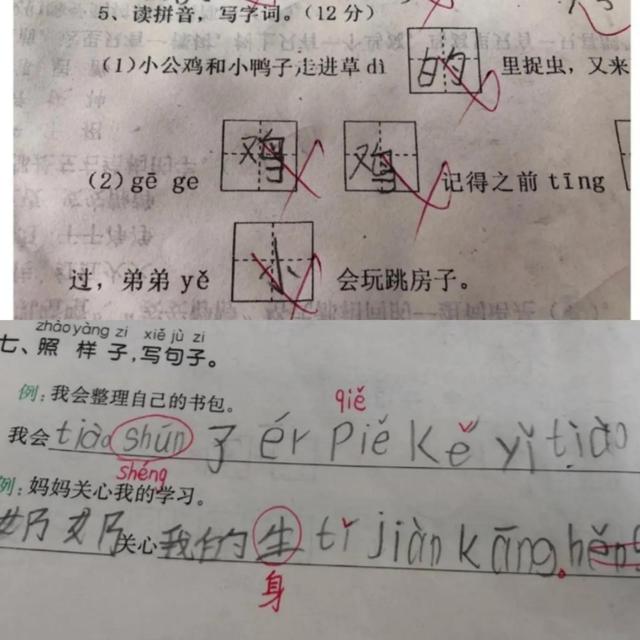 5. 读拼音，写字词。(12分)
(1)小公鸡和小鸭子走进草dì 的 里捉虫，又来
(2)gē ge 鸡 鸡 记得之前tīng
过，弟弟yě 小 会玩跳房子。
zhào yàng zi xiě jù zi
七、照样子，写句子。
例：我会整理自己的书包。
qiě
我会tiào shún了 ér Piě Kě yǐ tiào
shéng
例：妈妈关心我的学习。
奶奶关心我的生tǐ jiàn kāng
身